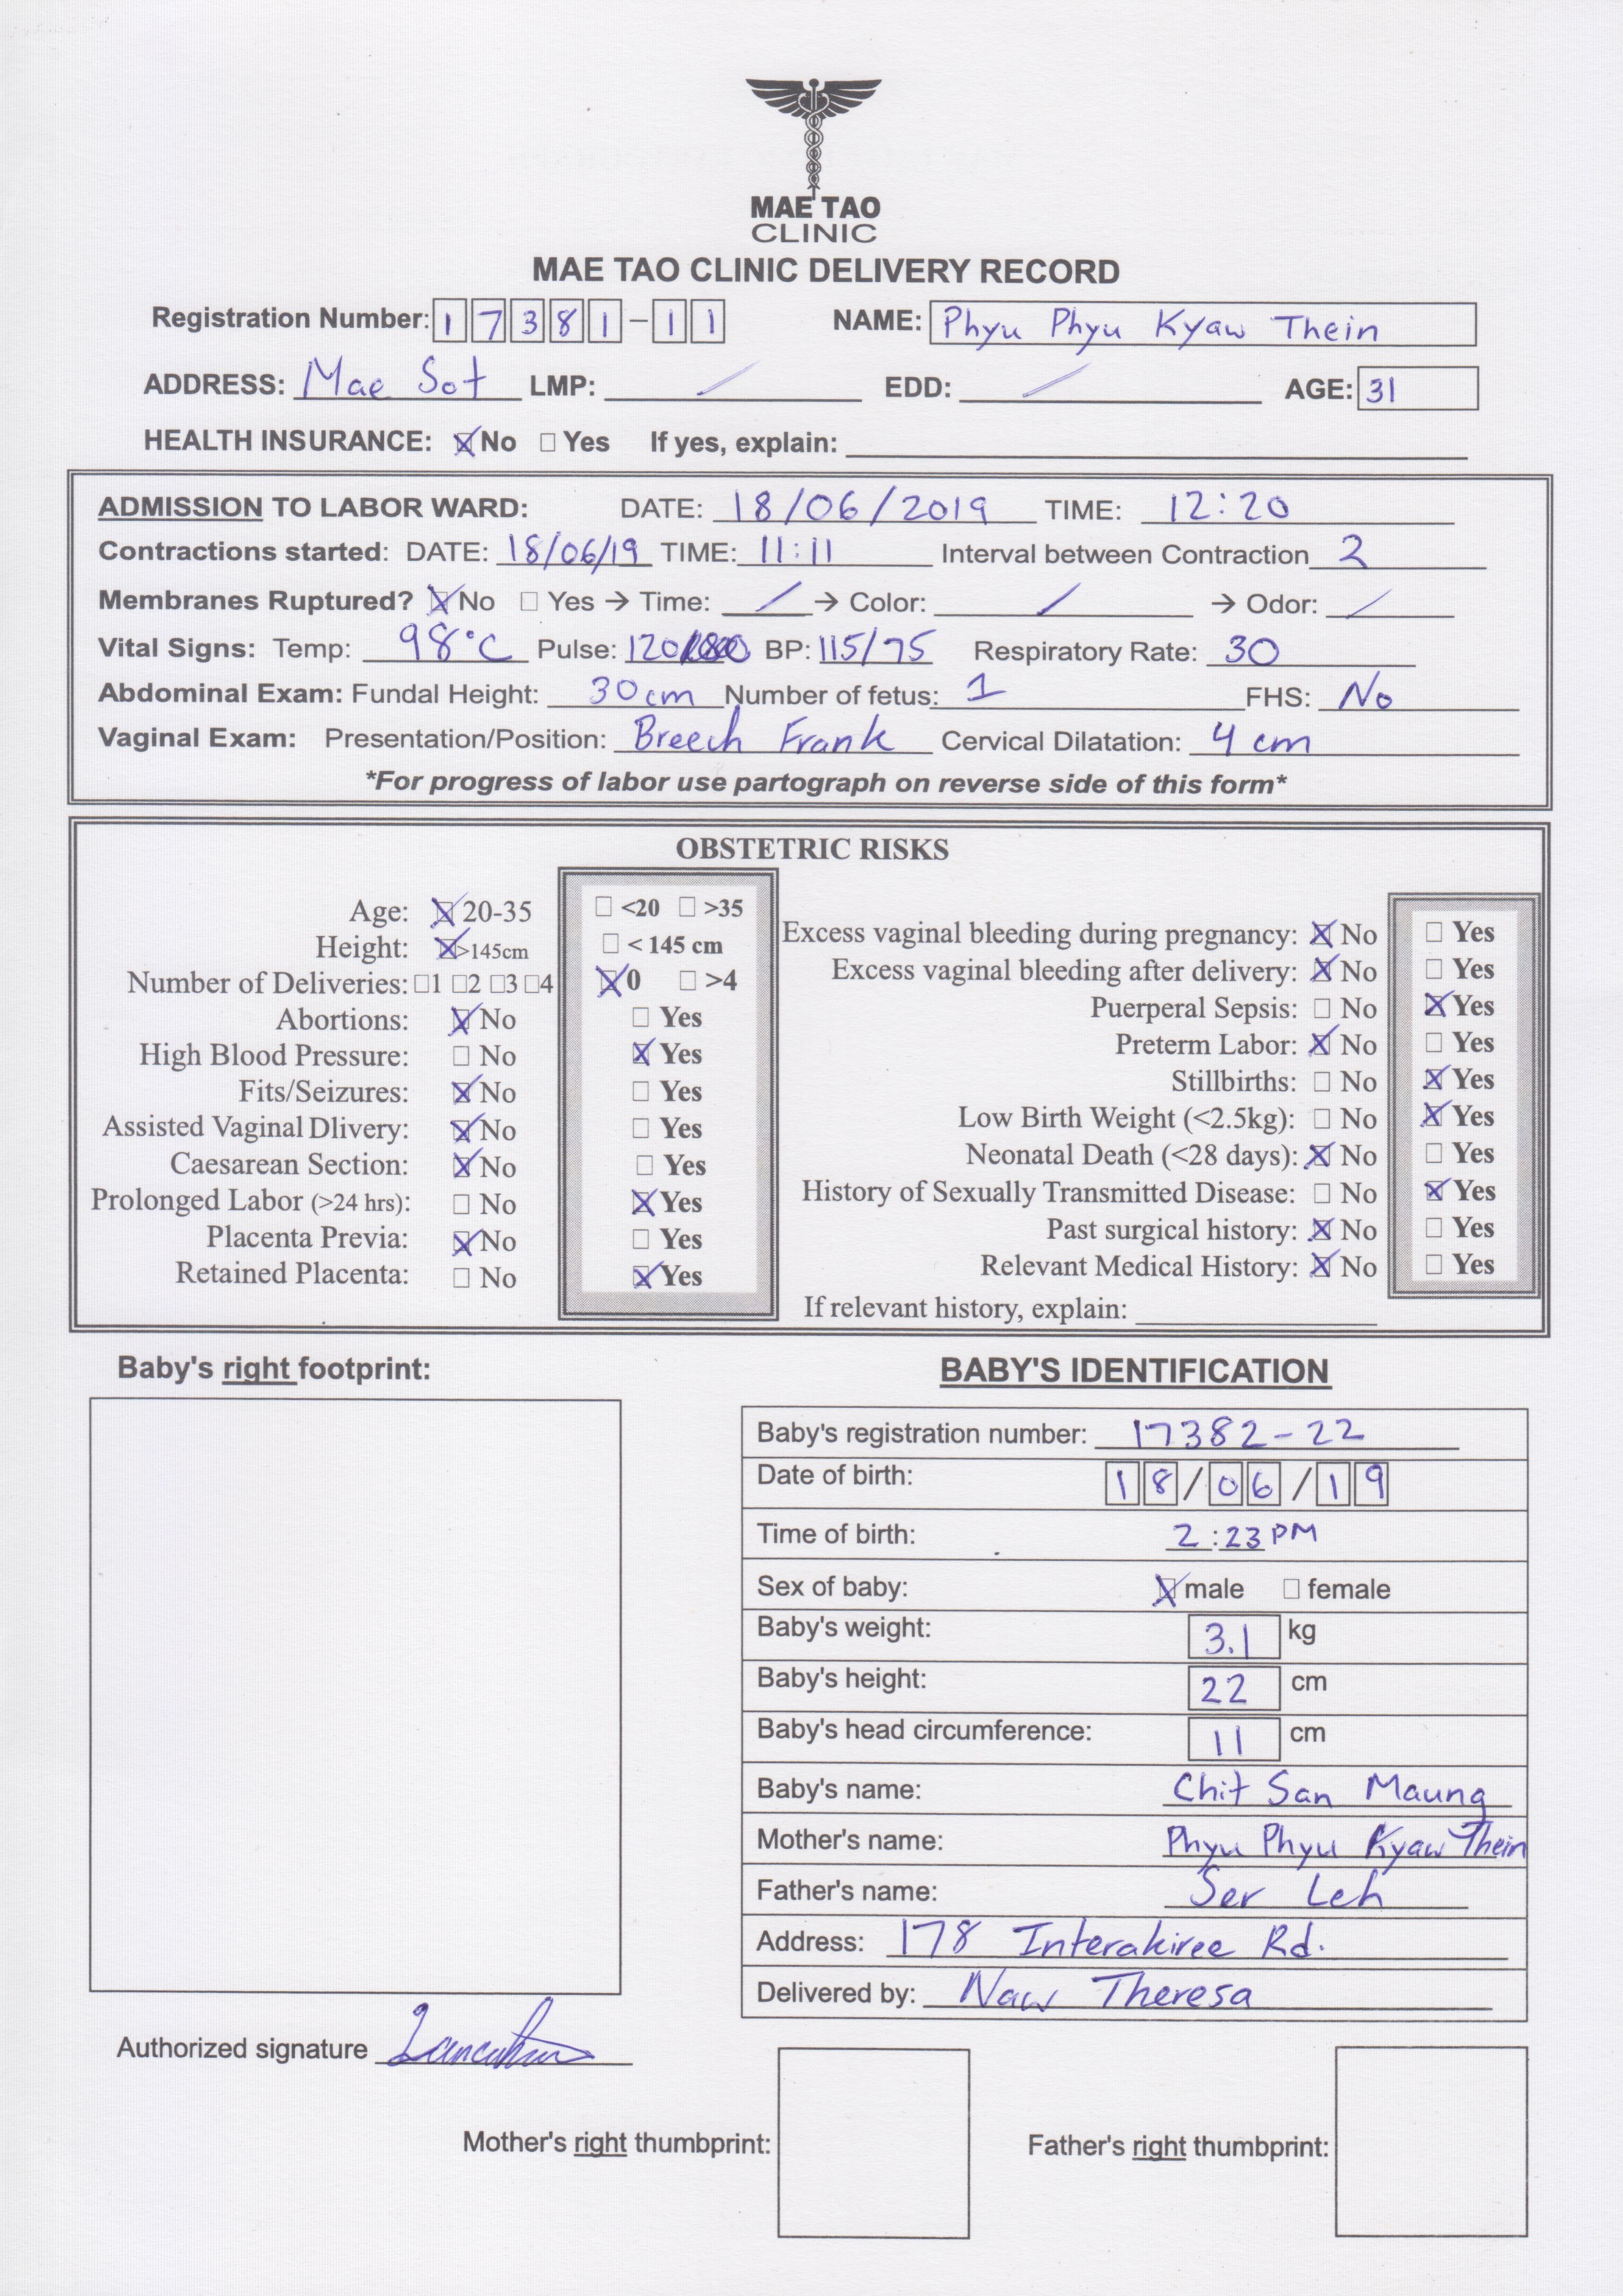 MAE TAO
CLINIC
MAE TAO CLINIC DELIVERY RECORD
Registration Number: 17381-11 NAME: Phyu Phyu Kyaw Thein
ADDRESS: Mae Sot LMP: / EDD: / AGE: 31
HEALTH INSURANCE: ☒No ☐ Yes If yes, explain:
ADMISSION TO LABOR WARD: DATE: 18/06/2019 TIME: 12:20
Contractions started: DATE: 18/06/19 TIME: 11:11 Interval between Contraction 2
Membranes Ruptured? ☒No ☐ Yes → Time: / → Color: / → Odor: /
Vital Signs: Temp: 98°C Pulse: 120 BP: 115/75 Respiratory Rate: 30
Abdominal Exam: Fundal Height: 30cm Number of fetus: 1 FHS: No
Vaginal Exam: Presentation/Position: Breech Frank Cervical Dilatation: 4 cm
*For progress of labor use partograph on reverse side of this form*
OBSTETRIC RISKS
Age: ☒ 20-35 ☐ <20 ☐ >35
Height: ☒>145cm ☐ < 145 cm
Number of Deliveries: ☐1 ☐2 ☐3 ☐4 ☒0 ☐ >4
Abortions: ☒ No ☐ Yes
High Blood Pressure: ☐ No ☒ Yes
Fits/Seizures: ☒ No ☐ Yes
Assisted Vaginal Dlivery: ☒ No ☐ Yes
Caesarean Section: ☒ No ☐ Yes
Prolonged Labor (>24 hrs): ☐ No ☒ Yes
Placenta Previa: ☒ No ☐ Yes
Retained Placenta: ☐ No ☒ Yes
Excess vaginal bleeding during pregnancy: ☒ No ☐ Yes
Excess vaginal bleeding after delivery: ☒ No ☐ Yes
Puerperal Sepsis: ☐ No ☒ Yes
Preterm Labor: ☒ No ☐ Yes
Stillbirths: ☐ No ☒ Yes
Low Birth Weight (<2.5kg): ☐ No ☒ Yes
Neonatal Death (<28 days): ☒ No ☐ Yes
History of Sexually Transmitted Disease: ☐ No ☒ Yes
Past surgical history: ☒ No ☐ Yes
Relevant Medical History: ☒ No ☐ Yes
If relevant history, explain:
Baby's right footprint:
BABY'S IDENTIFICATION
Baby's registration number: 17382-22
Date of birth: 18/06/19
Time of birth: 2:23 PM
Sex of baby: ☒ male ☐ female
Baby's weight: 3.1 kg
Baby's height: 22 cm
Baby's head circumference: 11 cm
Baby's name: Chit San Maung
Mother's name: Phyu Phyu Kyaw Thein
Father's name: Ser Leh
Address: 178 Interakiree Rd.
Delivered by: Naw Theresa
Authorized signature
Mother's right thumbprint: Father's right thumbprint: